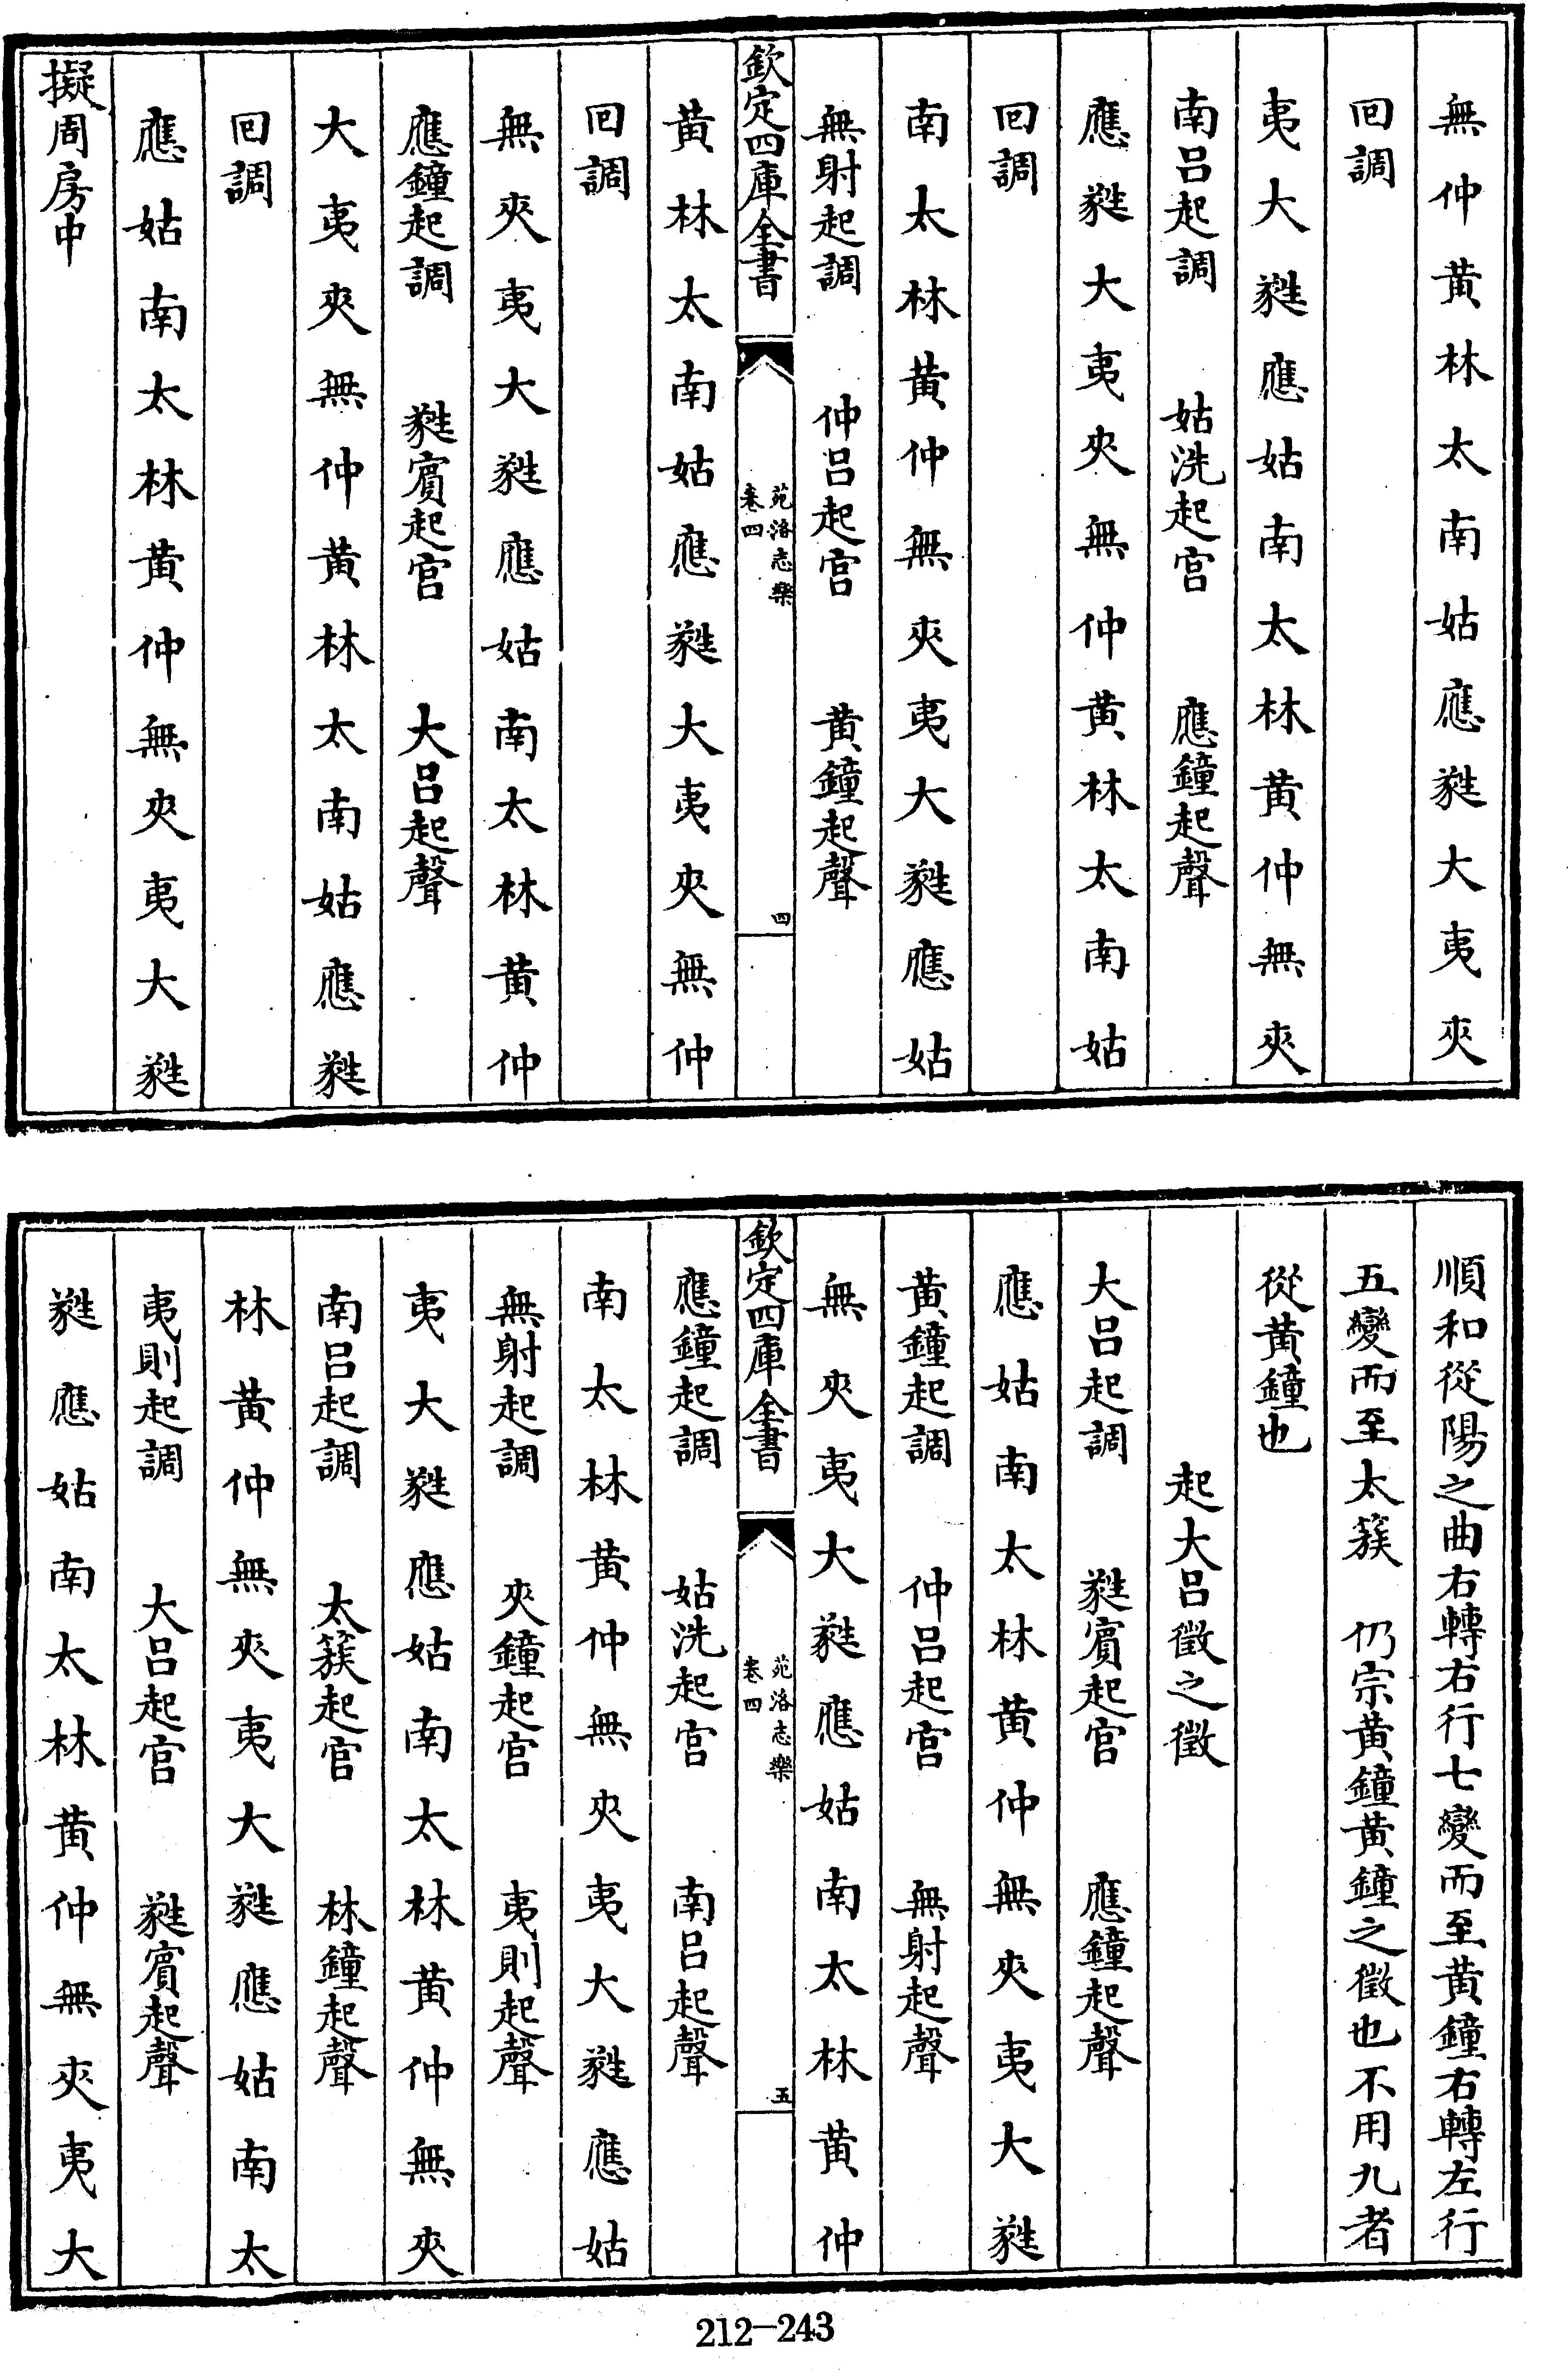 無仲黃林太南姑應㽔大夷夾
回調
夷大㽔應姑南太林黃仲無夾
南呂起調　姑洗起宮　應鐘起聲
應㽔大夷夾無仲黃林太南姑
回調
南太林黃仲無夾夷大㽔應姑
無射起調　仲呂起宮　黃鐘起聲
欽定四庫全書
苑洛志樂
卷四
四
黃林太南姑應㽔大夷夾無仲
回調
無夾夷大㽔應姑南太林黃仲
應鐘起調　㽔賓起宮　大呂起聲
大夷夾無仲黃林太南姑應㽔
回調
應姑南太林黃仲無夾夷大㽔
擬周房中
順和從陽之曲右轉右行七變而至黃鐘右轉左行
五變而至太簇　仍宗黃鐘黃鐘之徵也不用九者
從黃鐘也
起大呂徵之徵
大呂起調　㽔賓起宮　應鐘起聲
應姑南太林黃仲無夾夷大㽔
黃鐘起調　仲呂起宮　無射起聲
無夾夷大㽔應姑南太林黃仲
欽定四庫全書
苑洛志樂
卷四
五
應鐘起調　姑洗起宮　南呂起聲
南太林黃仲無夾夷大㽔應姑
無射起調　夾鐘起宮　夷則起聲
夷大㽔應姑南太林黃仲無夾
南呂起調　太簇起宮　林鐘起聲
林黃仲無夾夷大㽔應姑南太
夷則起調　大呂起宮　㽔賓起聲
㽔應姑南太林黃仲無夾夷大
212-243